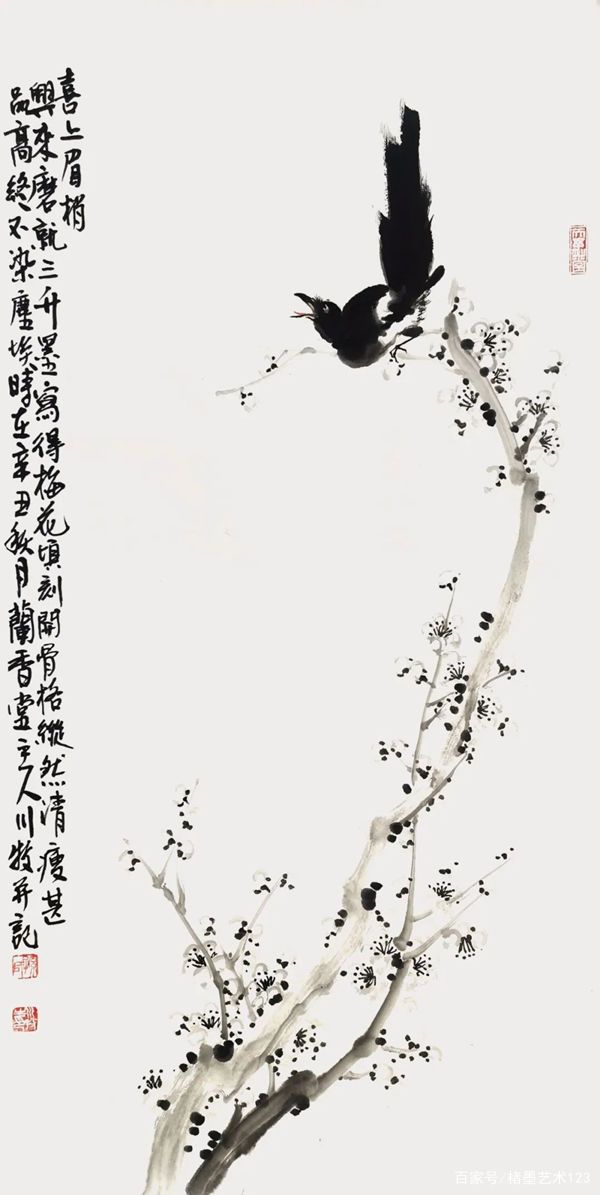 喜上眉梢
興来磨就三升墨寫得梅花頃刻開骨格縱然清瘦甚
品高終不染塵埃時在辛丑秋月蘭香堂主人川牧并記
百家号/楮墨艺术123